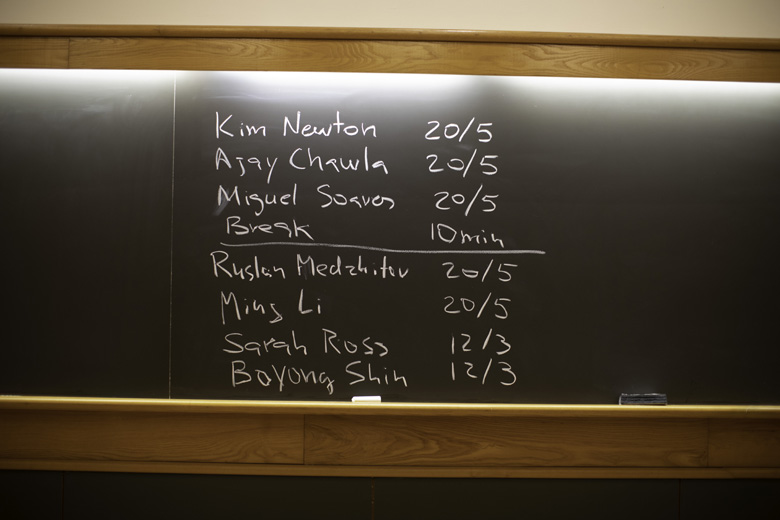 Kim Newton 20/5
Ajay Chawla 20/5
Miguel Soares 20/5
Break 10 min
Ruslan Medzhitov 20/5
Ming Li 20/5
Sarah Ross 12/3
Boyoung Shin 12/3